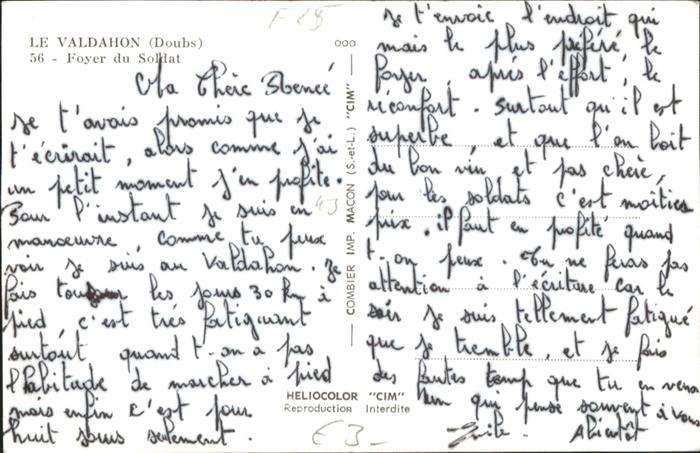 F 25
LE VALDAHON (Doubs)
56 - Foyer du Soldat
Ma Chère
Je t'avais promis que je
t'écrirait, alors comme j'ai
un petit moment j'en profite.
Pour l'instant je suis en
manœuvre, comme tu peux
voir je suis au Valdahon. Je
fais tous les jours 30 km à
pied, c'est très fatiguant
surtout quand t-on a pas
l'habitude de marcher à pied
mais enfin c'est pour
huit jours seulement.
000
COMBIER IMP. MACON (S.-et-L.) "CIM"
HELIOCOLOR "CIM"
Reproduction Interdite
Je t'envoie l'endroit qui
mais le plus préféré, le
foyer, après l'effort, le
réconfort. Surtout qu'il est
superbe, et que l'on boit
du bon vin et pas chère,
pour les soldats c'est moities
prix. il faut en profité quand
t-on peux. Tu ne feras pas
attention à l'écriture car le
soir je suis tellement fatigué
que je tremble, et je fais
des fautes temp que tu en veux
qui pense souvent à vous
Abientôt